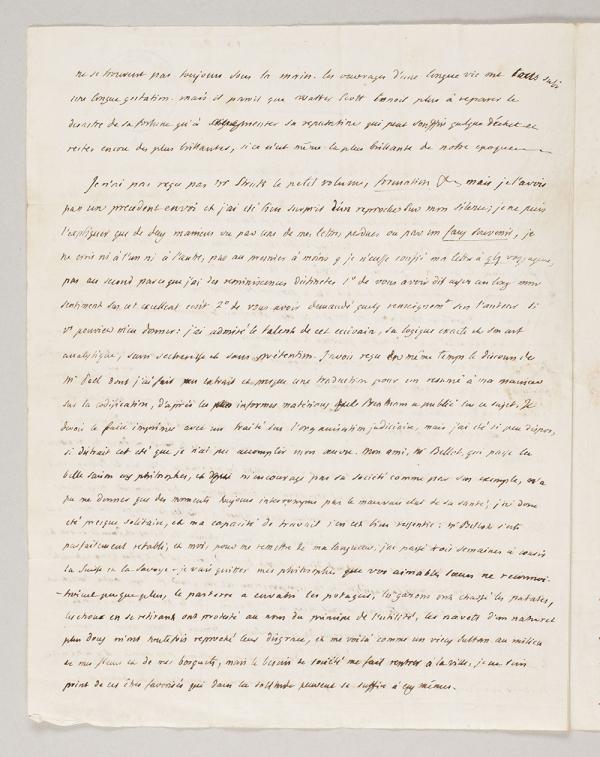 ne se trouvent pas toujours sous la main. les ouvrages d'une longue vie ont tous subi
une longue gestation. mais il paroit que Walter Scott songe plus à reparer le
desastre de sa fortune qu'à augmenter sa reputation qui peut souffrir quelque déchet et
rester encore des plus brillantes, si ce n'est même la plus brillante de notre epoque
Je n'ai pas reçu par Mr Strutt le petit volume, formation &c mais je l'avois
par un precedent envoi et j'ai été bien surpris d'un reproche sur mon silence; je ne puis
l'expliquer que de deux manieres ou par une de mes lettres perdues ou par un faux souvenir, je
ne crois ni à l'un ni à l'autre, pas au premier à moins q. je n'eusse confié ma lettre à qlq voyageur,
pas au second parceque j'ai des reminiscences distinctes 1o de vous avois dit assez au long mon
sentiment sur cet excellent ecrit 2o de vous avoir demandé quelq renseignemt sur l'auteur si
vs pouviez m'en donner: j'ai admiré le talent de cet ecrivain, sa logique exacte et son art
analytique, sans secheresse et sans prétention. J'avois reçu en même temps le discours de
Mr Peel dont j'ai fait un extrait et presque une traduction pour en resumé à ma maniere
sur la codification, d'après les informes matériaux que Bentham a publié sur ce sujet. Je
devois le faire imprimer avec un traité sur l'organisation judiciaire, mais j'ai été si peu dispos,
si distrait cet été que je n'ai pu accomplir mon œuvre. Mon ami, Mr Bellot, qui passe la
belle saison aux philosophes, et m'encourage par sa société comme par son exemple, n'a
pu me donner que des moments toujours interrompus par le mauvais etat de sa santé, j'ai donc
été presque solitaire, et ma capacité de travail s'en est bien ressentie: Mr Bellot s'est
parfaitement retabli, et moi, pour me remettre de ma langueur, j'ai passé trois semaines à courir
la Suisse et la Savoye - je vais quitter mes philosophes que vos aimables sœurs ne reconnoi-
-troient presque plus, le parterre a envahi les potagers, les gazons ont chassé les patates,
les choux en se retirant ont protesté au nom du principe de l'utilité, les navets d'un naturel
plus doux m'ont toutefois reproché leur disgrace, et me voilà comme un vieux Sultan au milieu
de mes fleurs et de mes bosquets, mais le besoin de société me fait rentrer à la ville, je ne suis
point de ces êtres favorisés qui dans la solitude peuvent se suffire à eux mêmes.